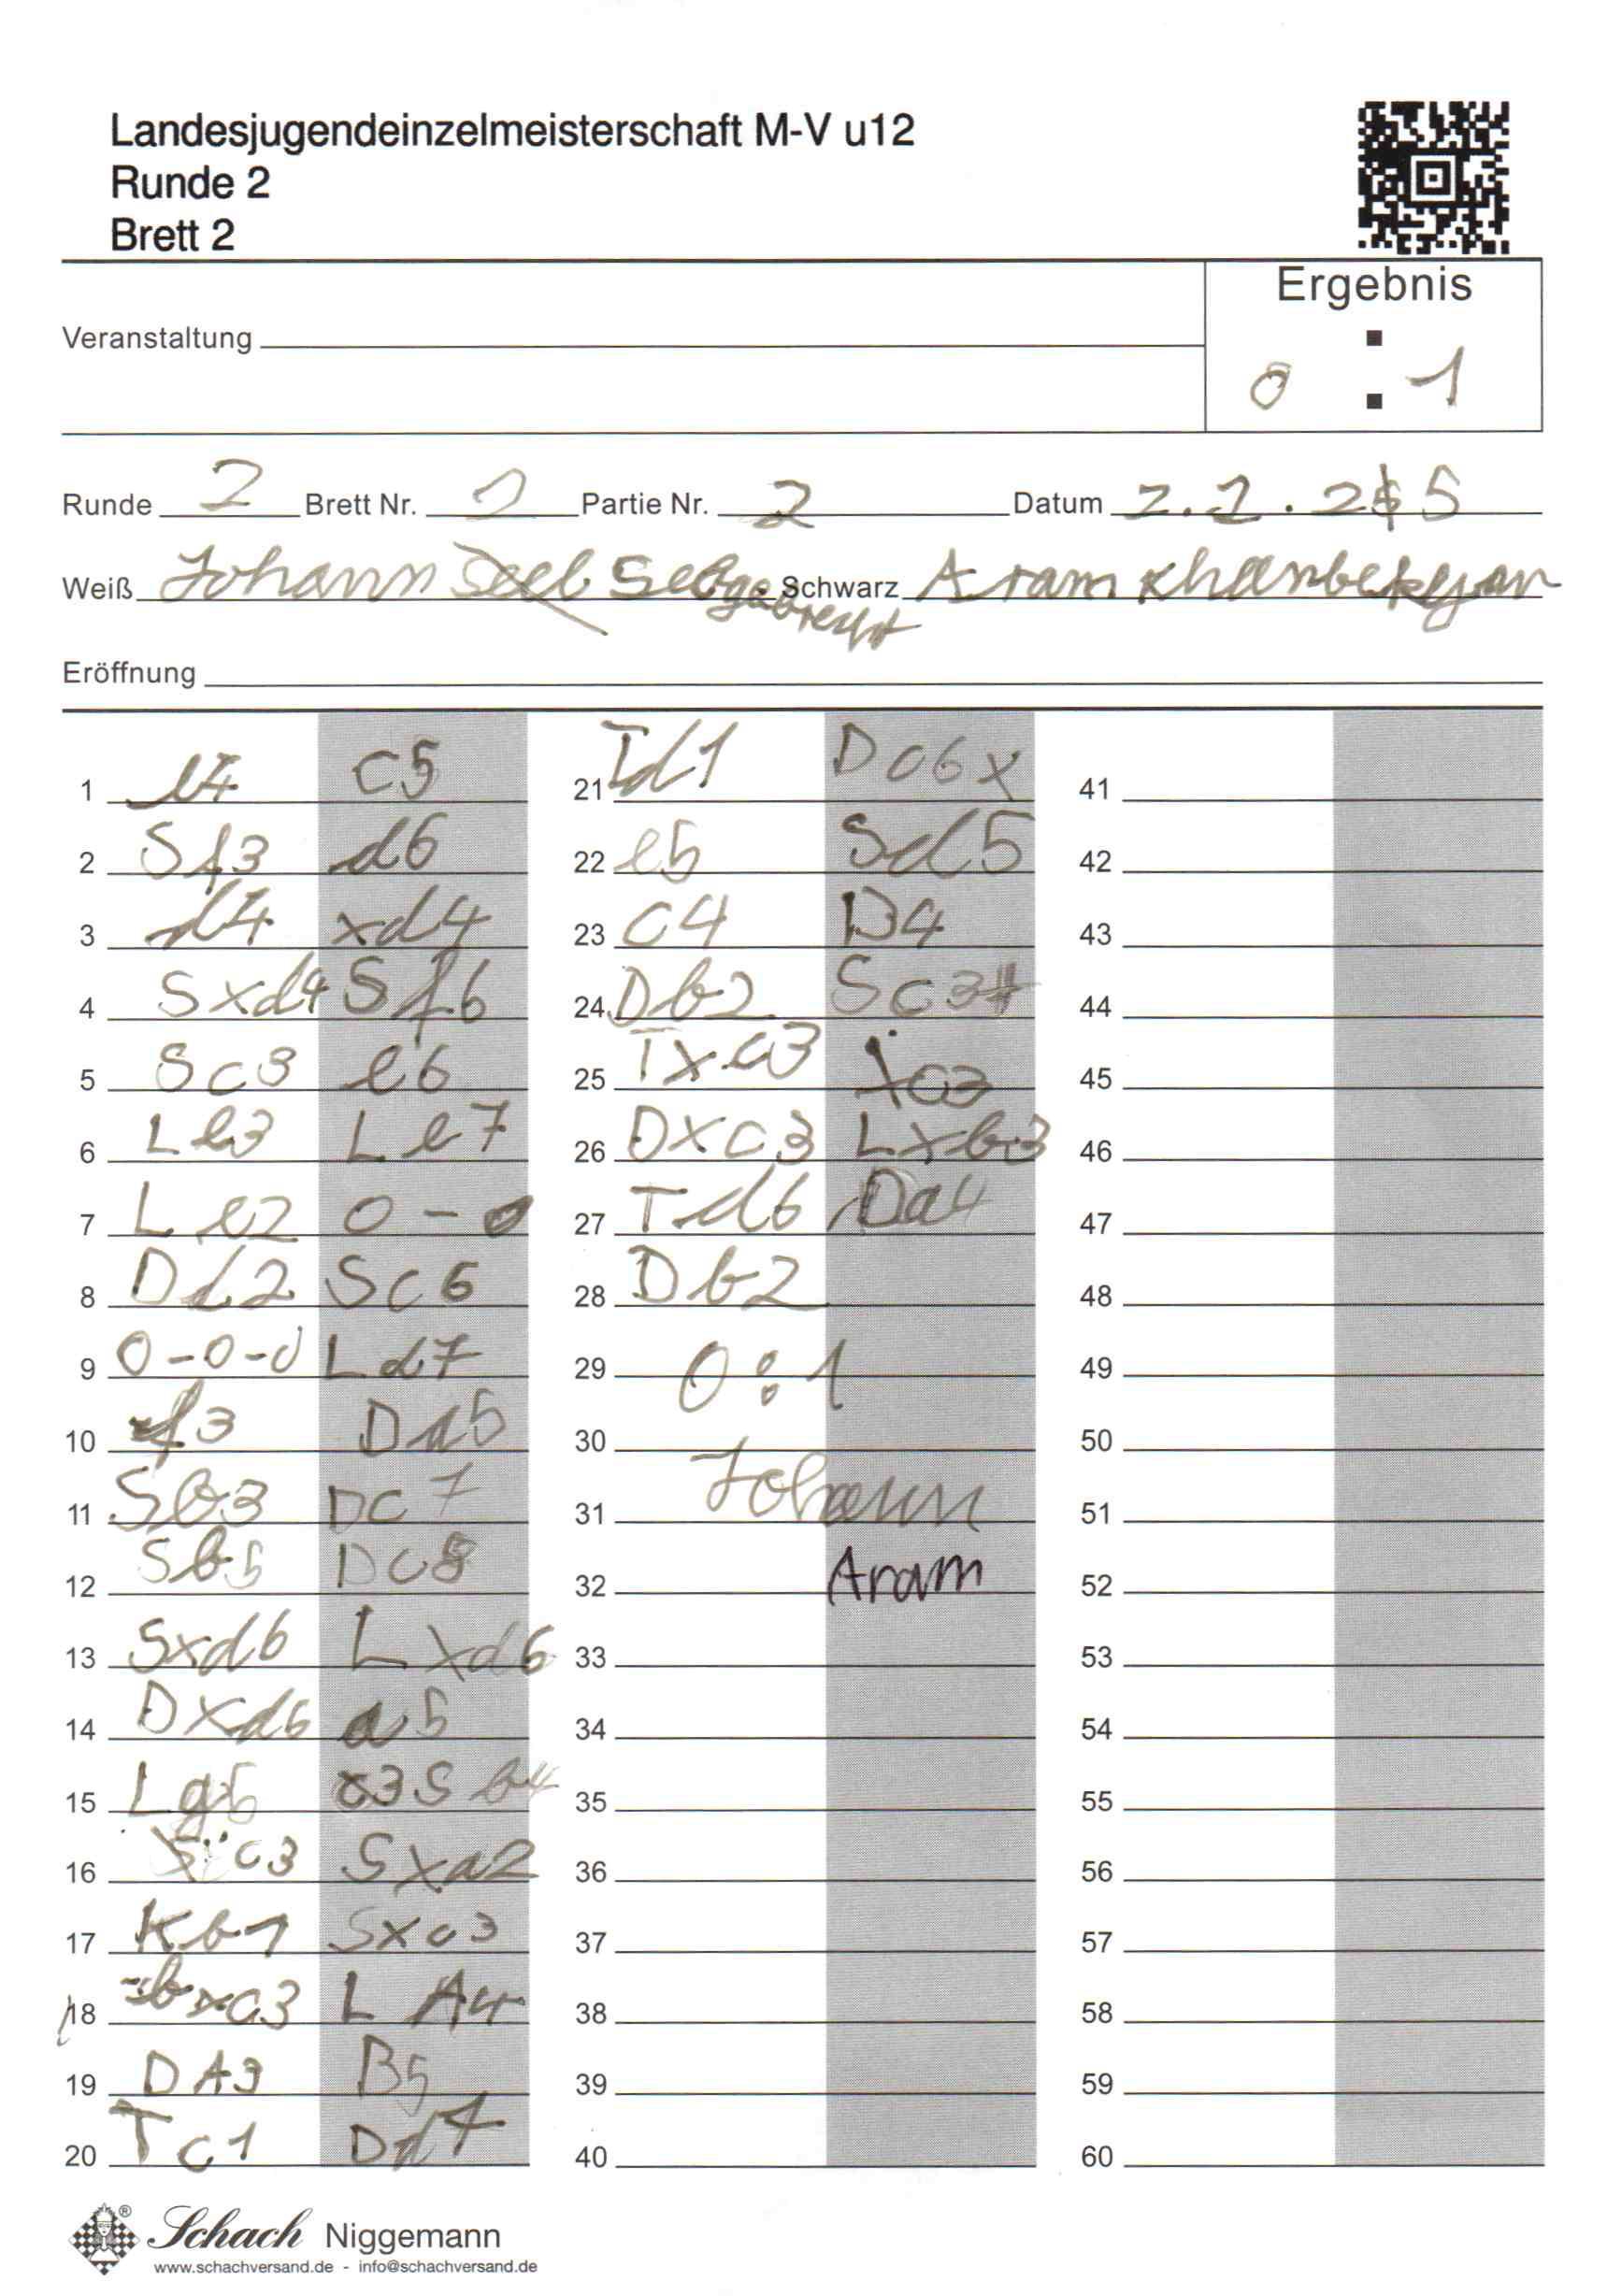 Landesjugendeinzelmeisterschaft M-V u12
Runde 2
Brett 2
Ergebnis
Veranstaltung
0 : 1
Runde 2 Brett Nr. 2 Partie Nr. 2 Datum 2.2.25
Weiß Johann Schwarz Aram Khanbekyan
Eröffnung
1 e4 c5
2 Sf3 d6
3 d4 xd4
4 Sxd4 Sf6
5 Sc3 e6
6 Le3 Le7
7 Le2 0-0
8 Dd2 Sc6
9 0-0-0 Ld7
10 f3 Da5
11 Sb3 Dc7
12 Sb5 Dc8
13 Sxd6 Lxd6
14 Dxd6 a5
15 Lg5 Sb4
16 c3 Sxa2
17 Kb1 Sxc3
18 bxc3 LA4
19 DA3 B5
20 Tc1 Dd7
21 Td1 Dc6x
22 e5 Sd5
23 c4 B4
24 Db2 Sc3#
25 Txc3 xc3
26 Dxc3 Lxb3
27 Td6 Da4
28 Db2
29 0:1
30
31 Johann
32 Aram
33
34
35
36
37
38
39
40
41
42
43
44
45
46
47
48
49
50
51
52
53
54
55
56
57
58
59
60
Schach Niggemann
www.schachversand.de - info@schachversand.de